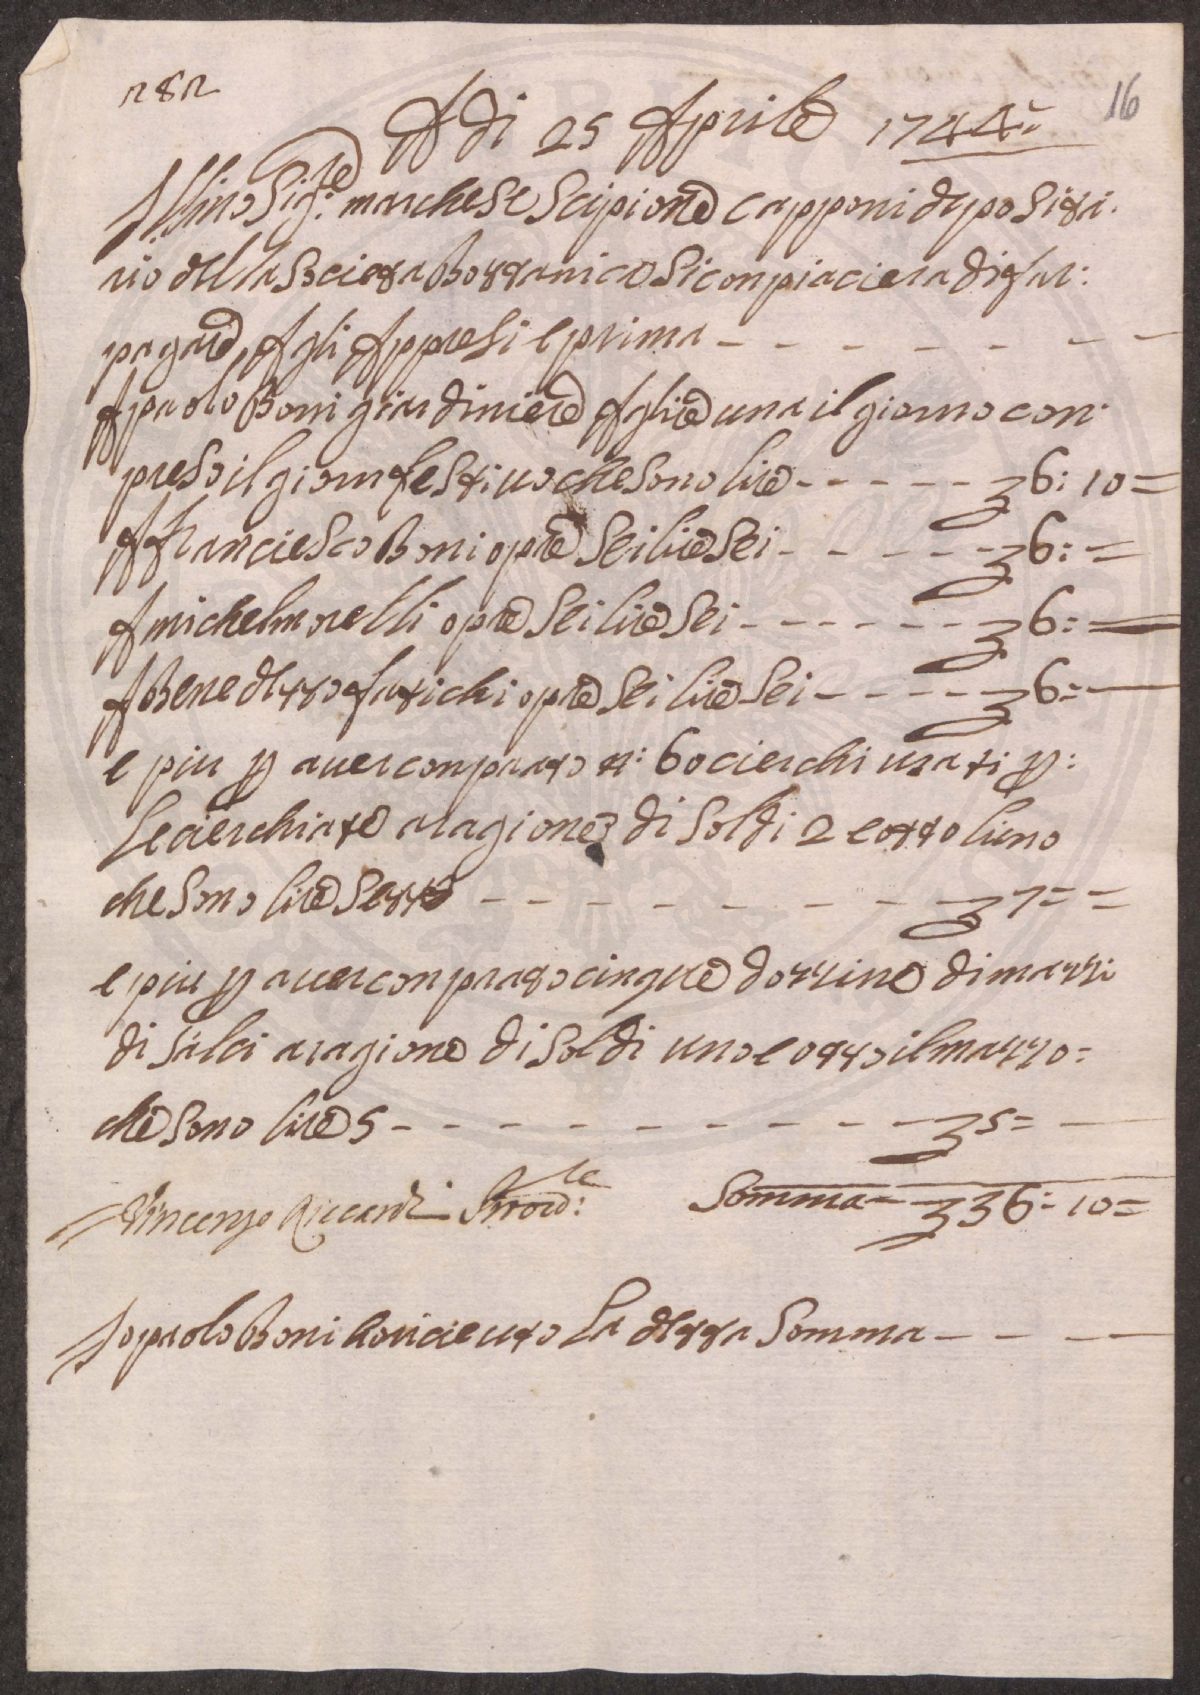 282
16
A di 25 Aprile 1744
Ill:mo Sig:re marchese Scipione Capponi deposita:
rio della Societa Bottanica Si conpiaciera di far:
pagare A gli Appresi e prima
A paolo Boni giardiniere A lire una il giorno con:
preso il giorn festiuo che sono lire 6: 10
A Franciesco Boni opre Sei lire Sei 6:
A michel morelli opre Sei lire Sei 6:
A Benedetto fatichi opre Sei lire Sei 6:
e piu p auer conprato n: 60 cierchi usati p:
le cierchiate a ragione di Soldi 2 e otto luno
che Sono lire Sette 7
e piu p auer conprato cinque dozzine di mazzi
di Salci a ragione di Soldi uno e otto il mazzo
che Sono lire 5 5
Vincenzo Riccardi Proved:re Somma 36: 10
Io paolo Boni o riceuto La detta Somma